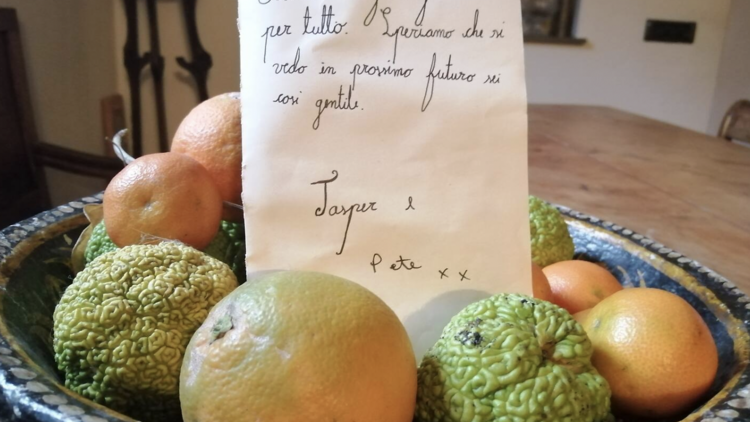 per tutto. Speriamo che si
vedo in prossimo futuro sei
così gentile.
Jasper e
Pete xx